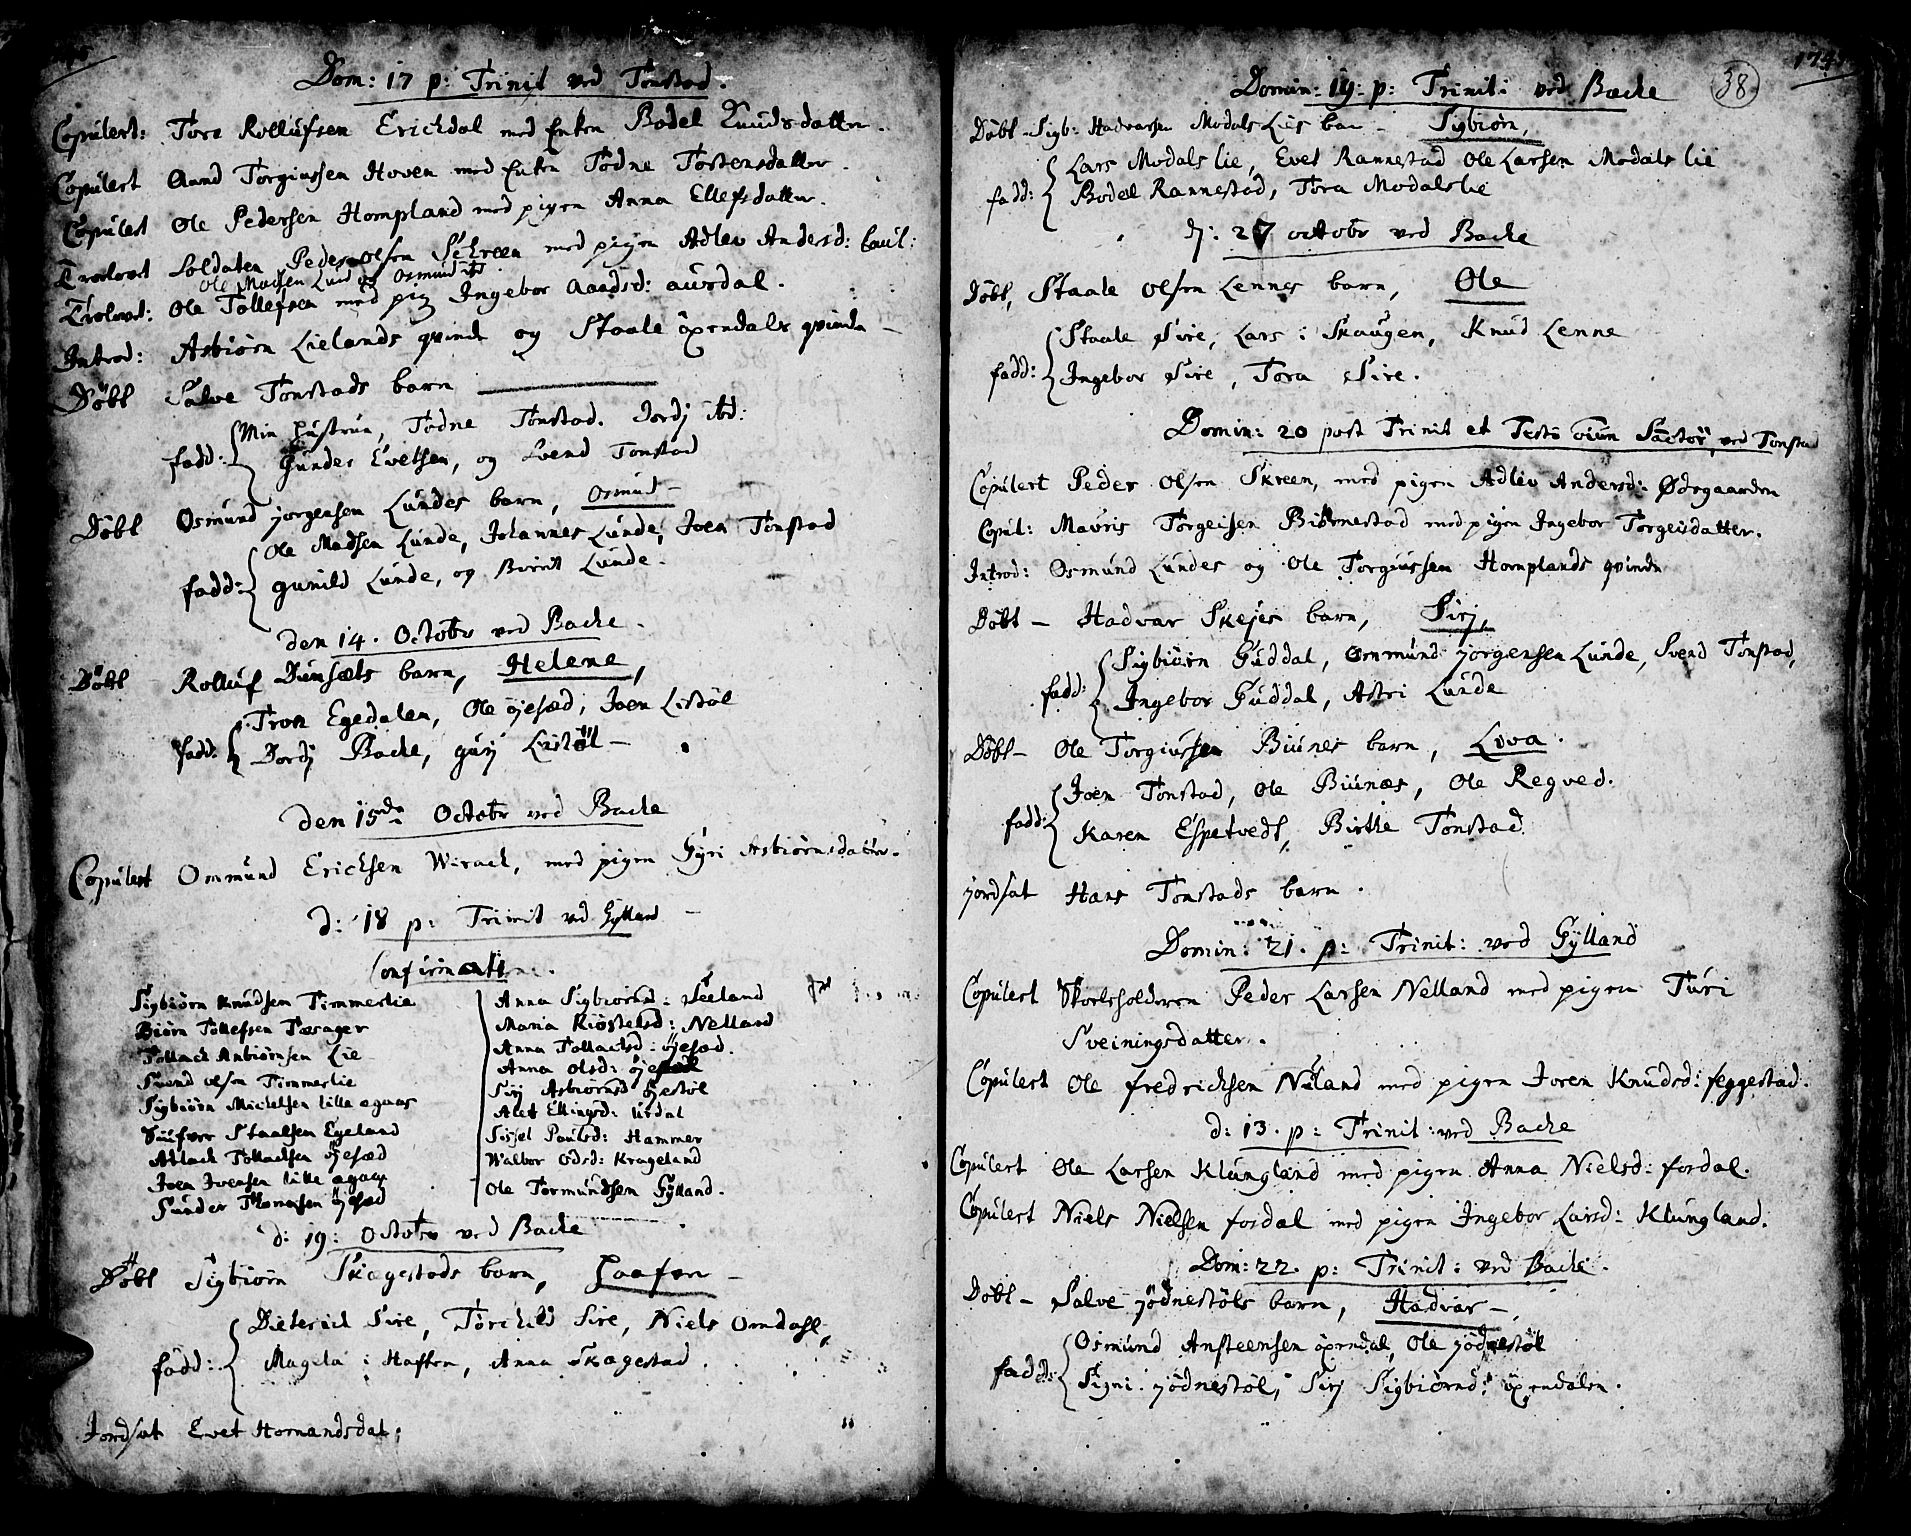 Dom: 17 p: Trinit ved Tonstad.
Copulert: Tore Rollufsen Erickdal med Enken Bodel Knudsdatter.
Copulert Aand Torgiussen Hoven med Enken Todne Tostensdatter
Copulert Ole Pedersen Hompland med pigen Anna Ellefsdatter.
Trolovet Soldaten Peder Olsen Schreen med pigen Adlev Andersd: Caul:
Ole Madsen Lund og Osmund ibd
Trolovet: Ole Tollefsen med pig Ingebor Aandsd: aurdal.
Introd: Asbiørn Lielands qvinde og Staale öpendals qvinde –
Döbt Salve Tonstads barn
fadd: Min Hustrue, Todne Tonstad. Jordj ibd:
Gunder Evetsen, og Svend Tonstad
Döbt Osmund jorgensen Lundes barn, Osmund –
fadd: Ole Madsen Lunde, Johannes Lunde, Joen Tonstad
gunild Lunde, og Berit Lunde.
den 14. Octobr ved Backe.
Döbt Rolluf Dunsæts barn, Helene,
fadd: Tron Egedalen, Ole öjesæd, Joen Listöl
Dordj Backe, gurj Listöl –
den 15de Octobr ved Backe
Copulert Ommund Ericksen Wirack, med pigen Gyri Asbiørnsdatter.
d: 18 p: Trinit ved Gylland –
Confirmati
Sigbiörn Knudsen Timmerlie
Biörn Tollefsen Tæsager
Tollack Anbiörnsen Lie
Svend olsen Timmerlie
Sigbiörn Mickelsen lille agaar
Siufver Staalsen Egeland
Atlack Tollacksen öjesæd
Joen Ivensen lille agaar
Gunder Thomæsen öjesæd
Anna Sigbiörnsd: Seeland
Maria Kiöstelsd: Nelland
Anna Tollacksd: öjesæd.
Anna Olsd: öjesæd
Sirj Asbiörnsd öjestöl
Alet Ellingsd: Urdal
Sissel Paulsd: Hammer
Walbor Odsd: Krageland
Ole Tormundsen Gylland.
d: 19: Octobr ved Backe
Döbt Sigbiörn Skagestads barn, Haafen –
fadd: Dieterick Sire, Torckild Sire, Niels Omdahl,
Magela i Haften, Anna Skagestad.
Jordsat Evet Hornandsdal;
38
174
Domin: 19: p: Trinit: ved Backe
Döbt – Sigb: Hadvarsen Modals Lies bar – Sigbiörn,
fadd: Lars Modals lie, Evet Rannestad Ole Larsen Modals lie
Bodel Rannestad, Tora Modalslie
d: 27 octobr ved Backe
Döbt, Staale Olsen Lennes barn, Ole
fadd: Staale Sire, Lars i Skaugen, Knud Lenne
Ingebor Sire, Tora Sire.
Domin: 20 post Trinit et Festo oiun Sactor, ved Tonstad
Copulert Peder Olsen Skreen, med pigen Adlev Andersd: Ødegaarden
Copul: Mauris Torgeisen Biörnestad med pigen Ingebor Torgeisdatter.
Introd: Osmund Lundes og Ole Torgiussen Homplands qvinde
Döbt – Hadvar Skejes barn, Sirj,
fadd: Sigbiörn Guddal, Ommund jorgensen Lunde, Svend Tonstad,
Ingebor Guddal, Astri Lunde
Döbt – Ole Torgiussen Biunes barn, Lova.
fadd: Joen Tonstad, Ole Biunæs, Ole Regved.
Karen Espetvedt, Birthe Tonstad.
jordsat Hans Tonstads barn.
Domin: 21. p: Trinit: ved Gylland
Copulert Skoeleholderen Peder Larsen Nelland med pigen Turi
Sveiningsdatter.
Copulert Ole fredricksen Nuland med pigen Joren Knudsd: feggestad.
d: 13. p: Trinit: ved Backe
Copulert Ole Larsen Klungland med pigen Anna Nielsd: fordal.
Copulert Niels Nielsen fordal med pigen Ingebor Larsd: Klungland.
Dom: 22. p: Trinit: ved Backe.
Döbt – Salve jödnestöls barn, Hadvar –
fadd: Osmund Ansteensen öpendal, Ole jödnestöl
Signi jödnestöl, Sirj Sigbiörnd: öpendalen.